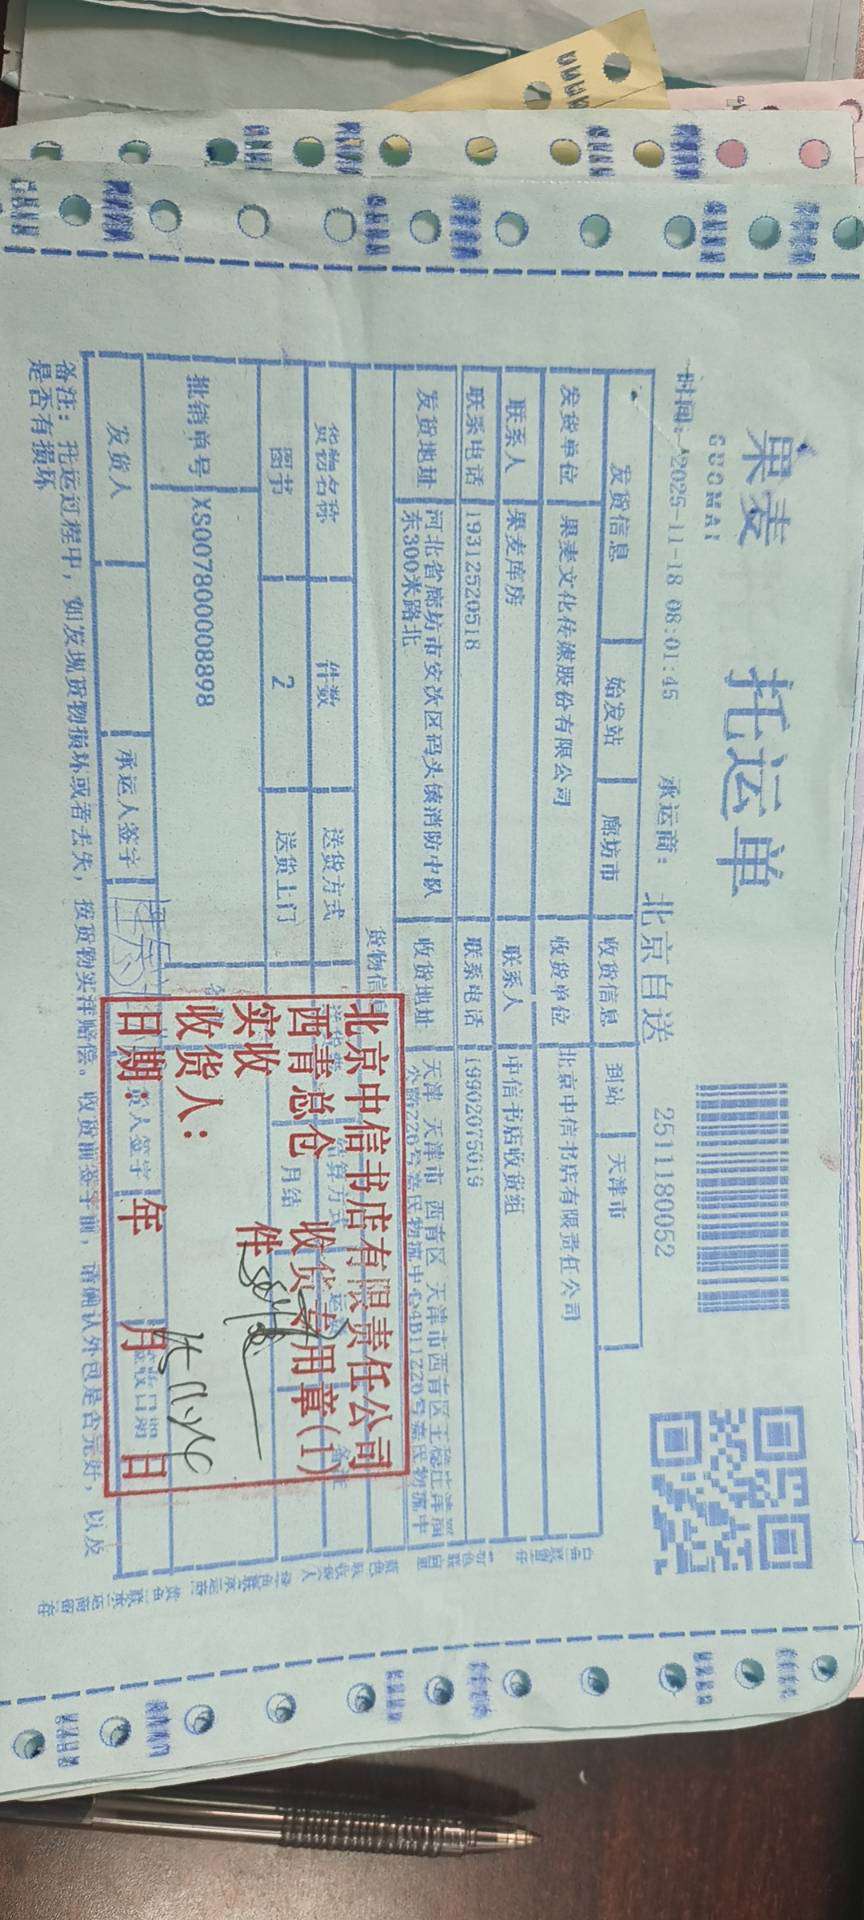 果麦
GUOMAI
托运单
时间: 2025-11-18 08:01:45 承运商: 北京自送 2511180052
发货信息 始发站 廊坊市 收货信息 到站 天津市
发货单位 果麦文化传媒股份有限公司 收货单位 北京中信书店有限责任公司
联系人 果麦库房 联系人 中信书店收货组
联系电话 19312520518 联系电话 19902075019
发货地址 河北省廊坊市安次区码头镇消防中队东300米路北 收货地址 天津 天津市 西青区 天津市西青区王
货物信息
货物名称 件数 送货方式 结算方式 备注
图书 2 送货上门 月结
批销单号 XS007800008898
发货人 承运人签字
备注: 托运过程中, 如发现货物损坏或者丢失, 按货物实洋赔偿。收货前签字前, 请确认外包是否完好, 以及
是否有损坏
北京中信书店有限责任公司
西青总仓 收货专用章(1)
实收 件
收货人:
日期: 年 月 日